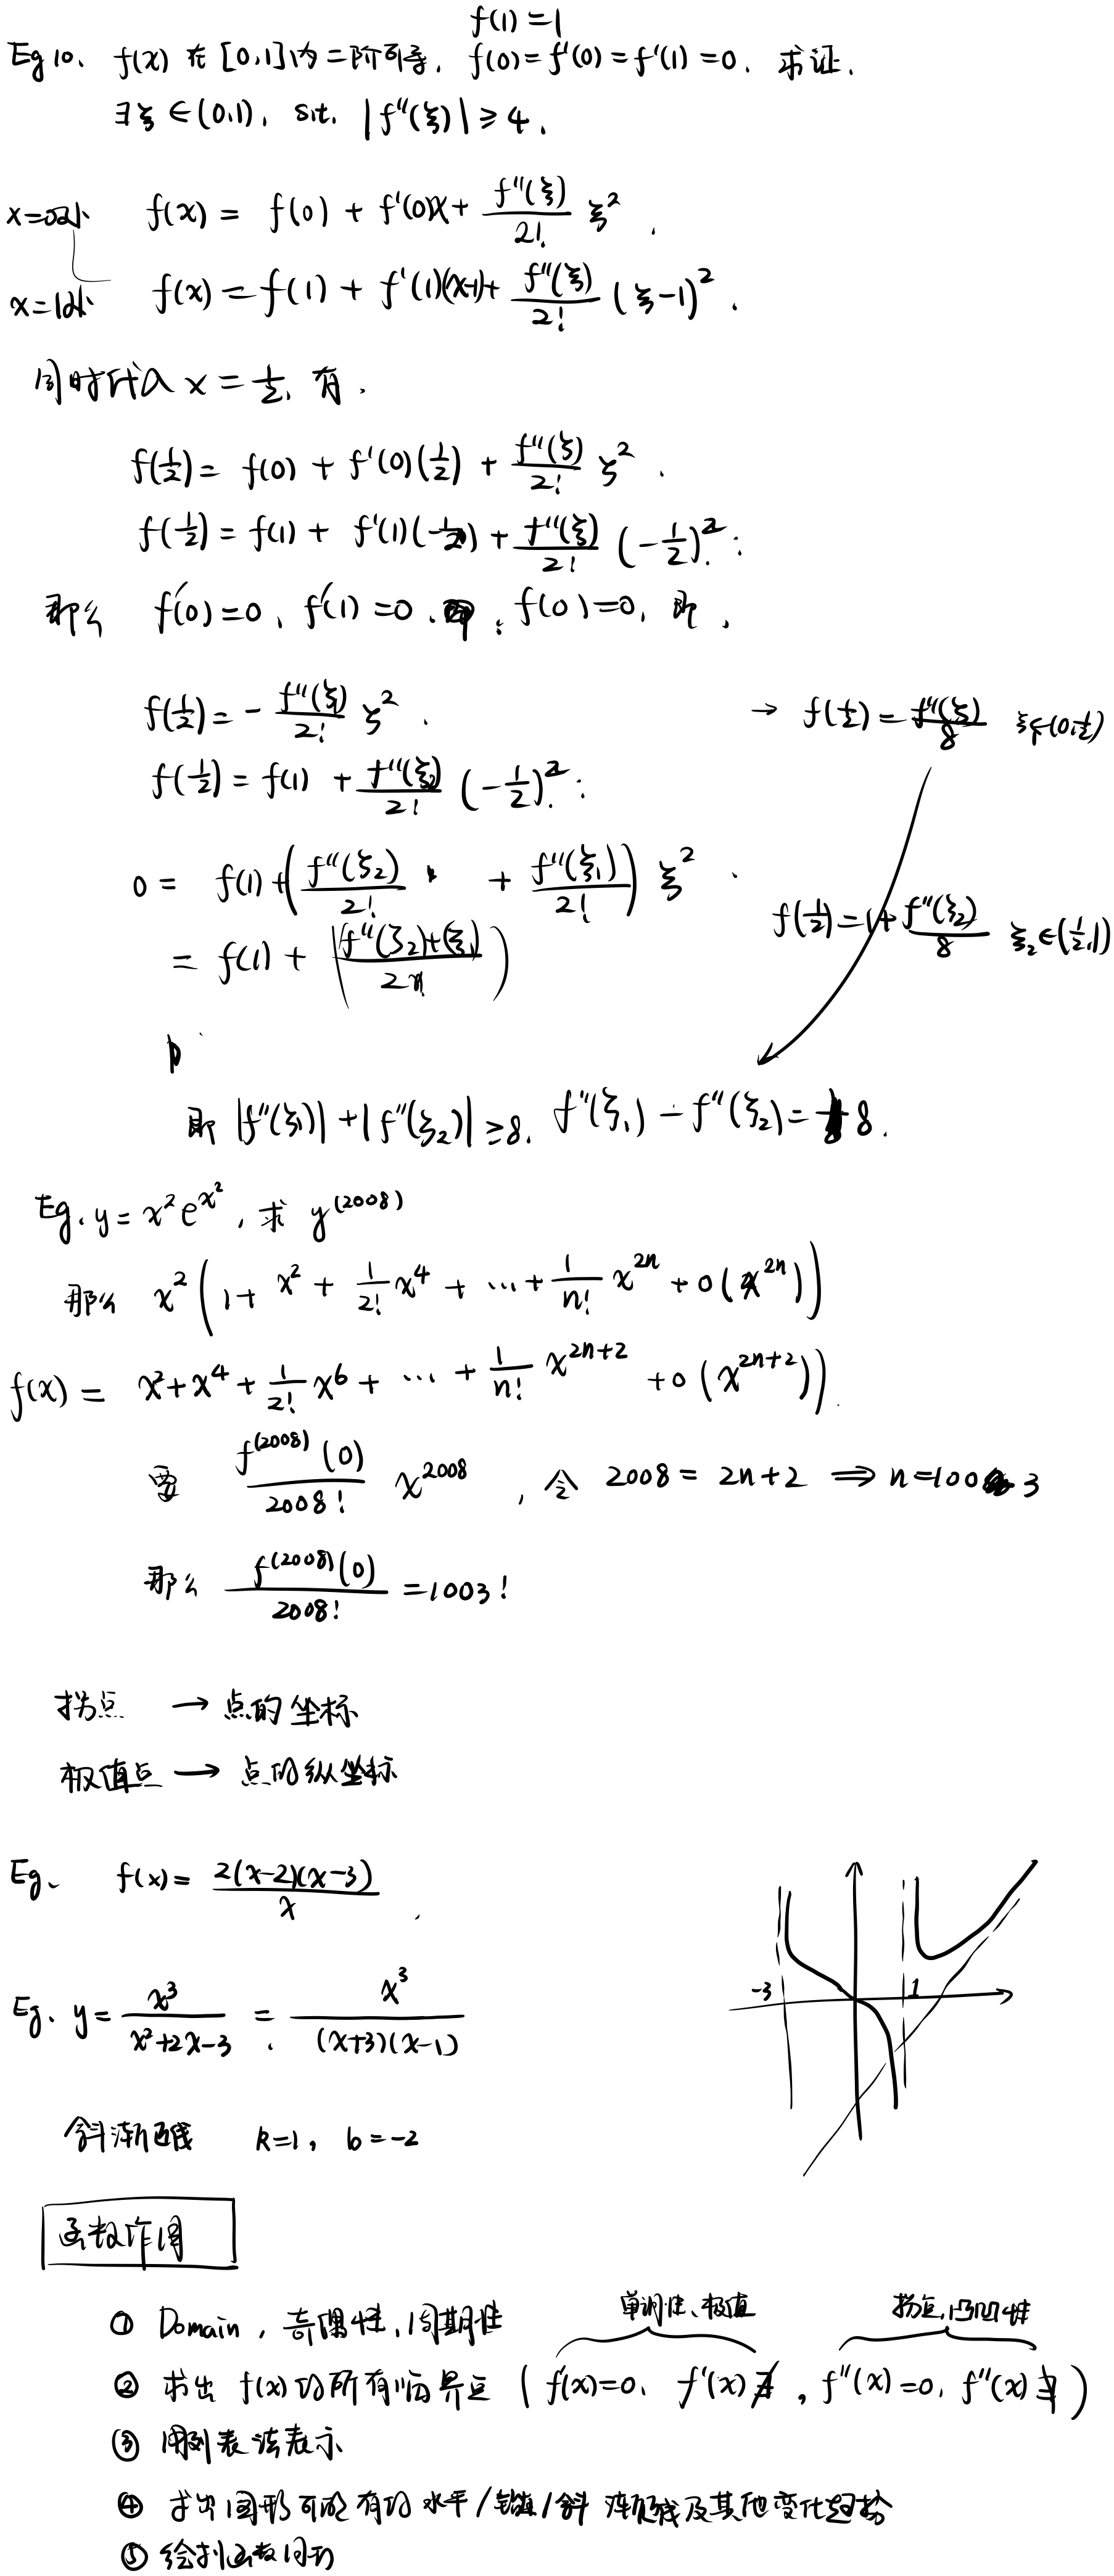 f(1)=1
Eg 10. f(x) 在 [0,1]内二阶可导, f(0)=f'(0)=f'(1)=0. 求证.
∃ξ∈(0,1), s.t. |f''(ξ)|≥4.
x=0处 f(x)= f(0) + f'(0)x + \frac{f''(ξ)}{2!} ξ^2.
x=1处 f(x)=f(1) + f'(1)(x-1)+ \frac{f''(ξ)}{2!} (ξ-1)^2.
同时代入 x=\frac{1}{2}, 有.
f(\frac{1}{2})= f(0) + f'(0)(\frac{1}{2}) + \frac{f''(ξ)}{2!} ξ^2.
f(\frac{1}{2})=f(1) + f'(1)(-\frac{1}{2})+\frac{f''(ξ)}{2!} (-\frac{1}{2})^2.
那么 f'(0)=0, f'(1)=0. f(0)=0, 即,
f(\frac{1}{2})= - \frac{f''(ξ_1)}{2!} ξ^2. → f(\frac{1}{2})=\frac{f''(ξ)}{8} ξ∈(0,\frac{1}{2})
f(\frac{1}{2})=f(1) +\frac{f''(ξ_2)}{2!} (-\frac{1}{2})^2.
0= f(1)+(\frac{f''(ξ_2)}{2!} + \frac{f''(ξ_1)}{2!}) ξ^2.
f(\frac{1}{2})=1+\frac{f''(ξ_2)}{8} ξ_2∈(\frac{1}{2},1)
= f(1) + (\frac{f''(ξ_2)+(ξ_1)}{2n})
即 |f''(ξ_1)|+|f''(ξ_2)|≥8. f''(ξ_1)-f''(ξ_2)=8.
Eg. y=x^2e^{x^2}, 求 y^{(2008)}
那么 x^2(1+ x^2+\frac{1}{2!}x^4+ ...+\frac{1}{n!} x^{2n}+o(x^{2n}))
f(x)= x^2+x^4+\frac{1}{2!}x^6+ ... +\frac{1}{n!} x^{2n+2} +o(x^{2n+2})).
要 \frac{f^{(2008)}(0)}{2008!} x^{2008}, 令 2008=2n+2 ⇒ n=1003
那么 \frac{f^{(2008)}(0)}{2008!} =1003!
拐点 → 点的坐标
极值点 → 点的纵坐标
Eg. f(x)= \frac{2(x-2)(x-3)}{x}.
Eg. y=\frac{x^3}{x^2+2x-3} = \frac{x^3}{(x+3)(x-1)}
-3 1
斜渐近线 k=1, b=-2
函数作图
① Domain, 奇偶性, 周期性
单调性、极值 拐点,凹凸性
② 求出 f(x) 的所有临界点 ( f'(x)=0, f'(x)∄, f''(x)=0, f''(x)∄ )
③ 用列表法表示
④ 求出图形可能有的 水平/铅直/斜 渐近线及其他变化趋势
⑤ 绘制函数图形